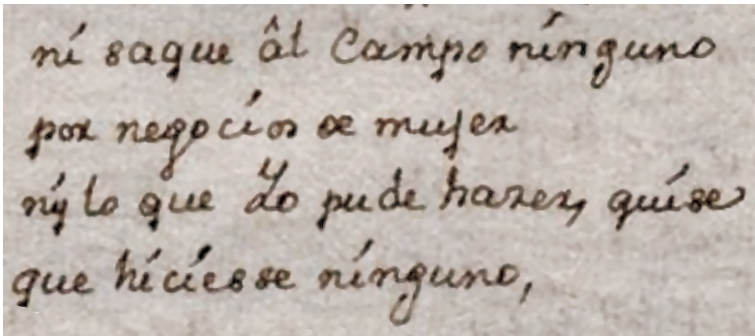 ni saque âl Campo ninguno
por negocios de mujer
ny lo que Yo pude hazer, quise
que hiciesse ninguno,